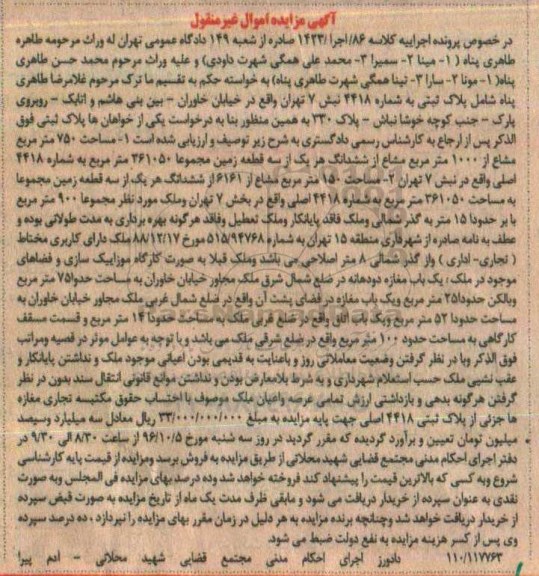 آگهی مزایده اموال غیرمنقول
در خصوص پرونده اجراییه کلاسه ۸۶/اجرا /۱۴۲۳ صادره از شعبه ۱۴۹ دادگاه عمومی تهران له وراث مرحومه طاهره
طاهری پناه ( ۱- مینا ۲- سمیرا ۳- محمد علی همگی شهرت داودی) و علیه وراث مرحوم محمد حسن طاهری
پناه( ۱- مونا ۲- سارا ۳- تینا همگی شهرت طاهری پناه) به خواسته حکم به تقسیم ما ترک مرحوم غلامرضا طاهری
پناه شامل پلاک ثبتی به شماره ۴۴۱۸ نبش ۷ تهران واقع در خیابان خاوران - بین بنی هاشم و اتابک - روبروی
پارک - جنب کوچه خوشا نباش - پلاک ۲۳۰ به همین منظور بنا به درخواست یکی از خواهان ها پلاک ثبتی فوق
الذکر پس از ارجاع به کارشناس رسمی دادگستری به شرح زیر توصیف و ارزیابی شده است ۱- مساحت ۷۵۰ متر مربع
مشاع از ۱۰۰۰ متر مربع مشاع از ششدانگ هر یک از سه قطعه زمین مجموعا ۳۶۱۰۵۰ متر مربع به شماره ۴۴۱۸
اصلی واقع در نبش ۷ تهران ۲- مساحت ۱۵۰ متر مربع مشاع از ۶۱۶۱ از ششدانگ هر یک از سه قطعه زمین مجموعا
به مساحت ۳۶۱۰۵۰ متر مربع به شماره ۴۴۱۸ اصلی واقع در بخش ۷ تهران وملک مورد نظر مجموعا ۹۰۰ متر مربع
با بر حدودا ۱۵ متر به گذر شمالی وملک فاقد پایانکار وملک تعطیل وفاقد هرگونه بهره برداری به مدت طولانی بوده و
عطف به نامه صادره از شهرداری منطقه ۱۵ تهران به شماره ۵۱۵/۹۴۷۶۸ مورخ ۸۸/۱۲/۱۷ ملک دارای کاربری مختلط
( تجاری- اداری ) واز گذر شمالی ۸ متر اصلاحی می باشد وملک قبلا به صورت کارگاه موزاییک سازی و فضاهای
موجود در ملک : یک باب مغازه دودهانه در ضلع شمال شرق ملک مجاور خیابان خاوران به مساحت حدودا۷۵ متر مربع
وبالکن حدودا۲۵ متر مربع ویک باب مغازه در فضای پشت آن واقع در ضلع شمال غربی ملک مجاور خیابان خاوران به
مساحت حدودا ۵۲ متر مربع ویک باب اتاق واقع در ضلع غربی ملک به مساحت حدودا ۱۴ متر مربع و قسمت مسقف
کارگاهی به مساحت حدود ۱۰۰ متر مربع واقع در ضلع شرقی ملک می باشد و با توجه به عوامل موثر در قصیه ومراتب
فوق الذکر وبا در نظر گرفتن وضعیت معاملاتی روز و باعنایت به قدیمی بودن اعیانی موجود ملک و نداشتن پایانکار و
عقب نشینی ملک حسب استعلام شهرداری و به شرط بلامعارض بودن و نداشتن موانع قانونی انتقال سند بدون در نظر
گرفتن هرگونه بدهی و بازداشتی ارزش تمامی عرصه واعیان ملک موصوف با احتساب حقوق مکتسبه تجاری مغازه
ها جزئی از پلاک ثبتی ۴۴۱۸ اصلی جهت پایه مزایده به مبلغ ۳۳/۰۰۰/۰۰۰/۰۰۰ ریال معادل سه میلیارد وسیصد
میلیون تومان تعیین و برآورد گردیده که مقرر گردید در روز سه شنبه مورخ ۹۶/۱۰/۵ از ساعت ۸/۳۰ الی ۹/۳۰ در
دفتر اجرای احکام مدنی مجتمع قضایی شهید محلاتی از طریق مزایده به فروش برسد ومزایده از قیمت پایه کارشناسی
شروع وبه کسی که بالاترین قیمت را پیشنهاد کند فروخته خواهد شد وده درصد بهای مزایده فی المجلس وبه صورت
نقدی به عنوان سپرده از خریدار دریافت می شود و مابقی ظرف مدت یک ماه از تاریخ مزایده به صورت قبض سپرده
از خریدار دریافت خواهد شد وچنانچه برنده مزایده به هر دلیل در زمان مقرر بهای مزایده را نپردازد ، ده درصد سپرده
وی پس از کسر هزینه مزایده به نفع دولت ضبط می شود.
۱۱۰/۱۱۷۷۶۳ دادورز اجرای احکام مدنی مجتمع قضایی شهید محلاتی - ادم پیرا